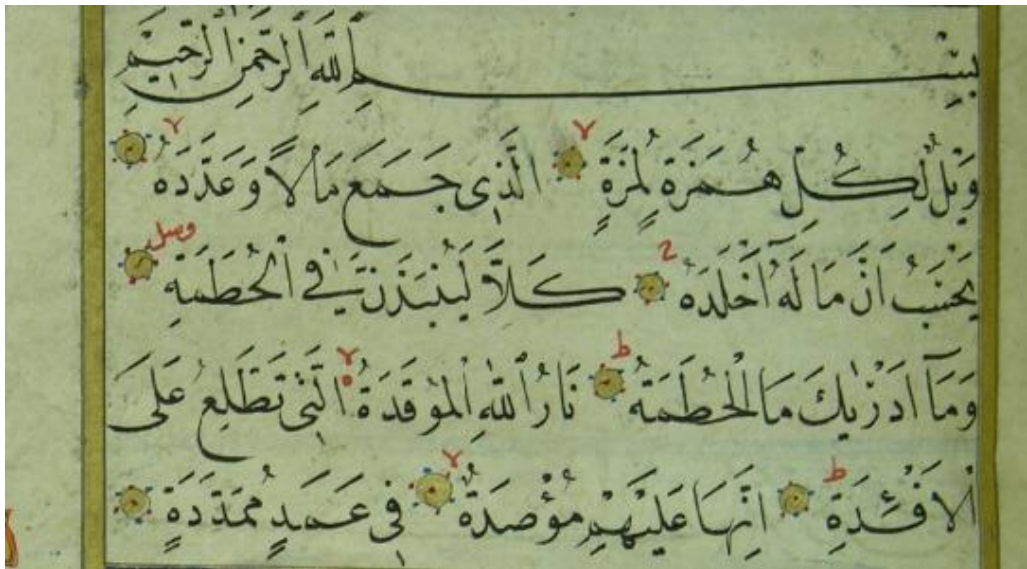 بِسْمِ اللَّهِ الرَّحْمَنِ الرَّحِيمِ
وَيْلٌ لِكُلِّ هُمَزَةٍ لُمَزَةٍ لا الَّذِى جَمَعَ مَالًا وَعَدَّدَهُ لا
يَحْسَبُ اَنَّ مَالَهُ اَخْلَدَهُ ج كَلَّا لَيُنْبَذَنَّ فِي الْحُطَمَةِ وصل
وَمَآ اَدْرٰيكَ مَا الْحُطَمَةُ ط نَارُ اللّٰهِ الْمُوقَدَةُ لا الَّتِى تَطَّلِعُ عَلَى
الْاَفْئِدَةِ ط اِنَّهَا عَلَيْهِمْ مُؤْصَدَةٌ لا فِى عَمَدٍ مُمَدَّدَةٍ